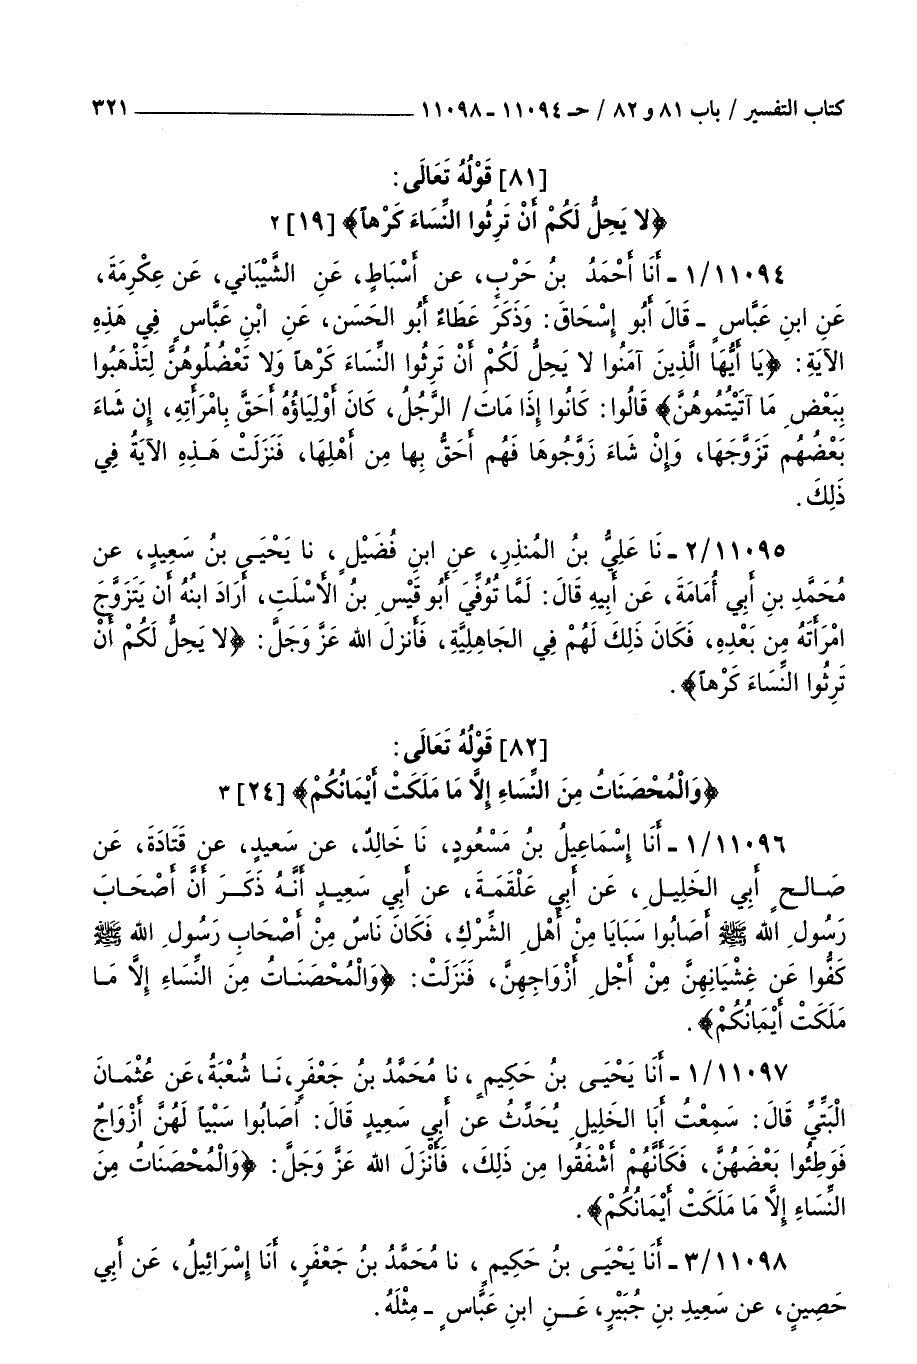 كتاب التفسير / باب ٨١ و ٨٢ / حـ ١١٠٩٤ - ١١٠٩٨ ٣٢١
[٨١] قَوْلُهُ تَعَالَى:
﴿لا يَحِلُّ لَكُمْ أَنْ تَرِثُوا النِّسَاءَ كَرْهاً﴾ [١٩] ٢
١/١١٠٩٤ - أَنَا أَحْمَدُ بنُ حَرْبٍ، عن أَسْبَاطٍ، عَنِ الشَّيْبَاني، عَن عِكْرِمَةَ،
عَنِ ابنِ عَبَّاسٍ - قَالَ أَبُو إِسْحَاقَ: وَذَكَرَ عَطَاءٌ أَبُو الحَسَن، عَنِ ابْنِ عَبَّاسٍ فِي هَذِهِ
الآيَةِ: ﴿يَا أَيُّهَا الَّذِينَ آمَنُوا لا يَحِلُّ لَكُمْ أَنْ تَرِثُوا النِّسَاءَ كَرْهاً وَلا تَعْضُلُوهُنَّ لِتَذْهَبُوا
بِبَعْضِ مَا آتَيْتُمُوهُنَّ﴾ قَالُوا: كَانُوا إِذَا مَاتَ/ الرَّجُلُ، كَانَ أَوْلِيَاؤُهُ أَحَقَّ بِامْرَأَتِهِ، إِن شَاءَ
بَعْضُهُم تَزَوَّجَهَا، وَإِنْ شَاءَ زَوَّجُوهَا فَهُم أَحَقُّ بِها مِن أَهْلِهَا، فَنَزَلَتْ هَـذِهِ الآيَةُ فِي
ذَلِكَ.
٢/١١٠٩٥ - نَا عَلِيُّ بنُ المُنذِرِ، عنِ ابنِ فُضَيْلٍ، نا يَحْيَـى بنُ سَعِيدٍ، عن
مُحَمَّدِ بنِ أَبي أُمَامَةَ، عَن أَبِيهِ قَالَ: لَمَّا تُوُفِّيَ أَبُو قَيْسِ بنُ الأَسْلَتِ، أَرَادَ ابنُهُ أَن يَتَزَوَّجَ
امْرَأَتَهُ مِن بَعْدِهِ، فَكَانَ ذَلِكَ لَهُمْ فِي الجَاهِلِيَّةِ، فَأَنزلَ الله عَزَّ وَجَلَّ: ﴿لا يَحِلُّ لَكُمْ أَنْ
تَرِثُوا النِّسَاءَ كَرْهاً﴾.
[٨٢] قَوْلُهُ تَعَالَى:
﴿وَالْمُحْصَنَاتُ مِنَ النِّسَاءِ إِلَّا مَا مَلَكَتْ أَيْمَانُكُمْ﴾ [٢٤] ٣
١/١١٠٩٦ - أَنَا إِسْمَاعِيلُ بنُ مَسْعُودٍ، نَا خَالِدٌ، عن سَعِيدٍ، عن قَتَادَةَ، عَن
صَـالِـحٍ أَبِي الخَلِيـلِ، عَن أَبِي عَلْقَمَـةَ، عن أَبي سَعِيـدٍ أَنَّـهُ ذَكَـرَ أَنَّ أَصْحَـابَ
رَسُولِ الله ﷺ أَصَابُوا سَبَايَا مِنْ أَهْلِ الشِّرْكِ، فَكَانَ نَاسٌ مِنْ أَصْحَابِ رَسُولِ الله ﷺ
كَفُّوا عَن غِشْيَانِهِنَّ مِنْ أَجْلِ أَزْوَاجِهِنَّ، فَنَزَلَتْ: ﴿وَالْمُحْصَنَـاتُ مِنَ النِّسَاءِ إِلَّا مَـا
مَلَكَتْ أَيْمَانُكُمْ﴾.
١/١١٠٩٧ - أَنَا يَحْيَـى بنُ حَكِيمٍ، نا مُحَمَّدُ بنُ جَعْفَرٍ، نَـا شُعْبَةُ، عَن عُثْمَـانَ
الْبَتِّيِّ قَالَ: سَمِعْتُ أَبَا الخَلِيلِ يُحَدِّثُ عن أَبي سَعِيدٍ قَالَ: أَصَابُوا سَبْياً لَهُنَّ أَزْوَاجٌ
فَوَطِئُوا بَعْضَهُنَّ، فَكَأَنَّهُمْ أَشْفَقُوا مِن ذَلِكَ، فَأَنْزَلَ الله عَزَّ وَجَلَّ: ﴿وَالْمُحْصَنَاتُ مِنَ
النِّسَاءِ إِلَّا مَا مَلَكَتْ أَيْمَانُكُمْ﴾.
٣/١١٠٩٨ - أَنَا يَحْيَـى بنُ حَكِيمٍ، نا مُحَمَّدُ بنُ جَعْفَرٍ، أَنَا إِسْرَائِيلُ، عَن أَبِي
حَصِينٍ، عن سَعِيدِ بنِ جُبَيْرٍ، عَـنِ ابنِ عَبَّاسٍ - مِثْلَهُ.